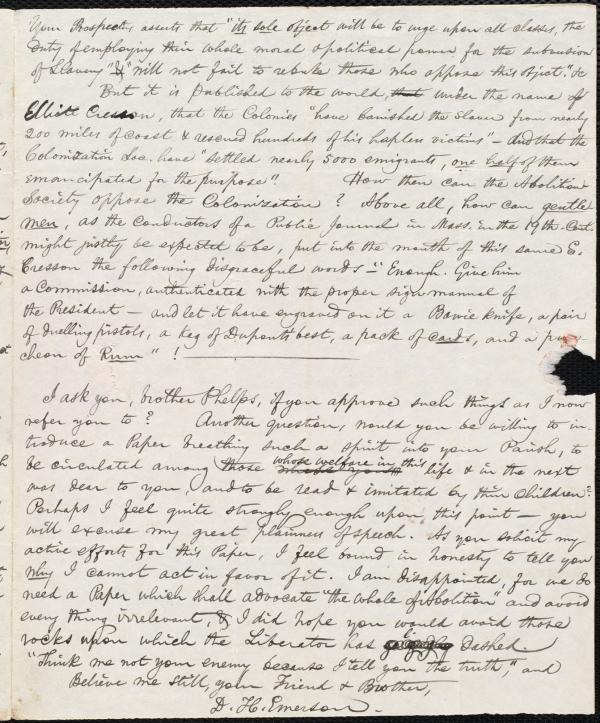 Your Prospectus asserts that "its sole object will be to urge upon all classes, the
duty of employing their whole moral & political power for the subversion
of Slavery" & "will not fail to rebuke those who oppose this object." &c
But it is published to the world, that under the name of
Elliott Cresson, that the Colonies "have banished the Slaver from nearly
200 miles of coast & rescued hundreds of his hapless victims" - And that the
Colonization Soc. have "settled nearly 5000 emigrants, one half of them
emancipated for the purpose"! How then can the Abolition
Society oppose the Colonization? Above all, how can gentle
men, as the conductors of a Public Journal in Mass. in the 19th Cent.
might justly be expected to be, put into the mouth of this same E.
Cresson the following disgraceful words - "Enough. Give him
a Commission, authenticated with the proper sign-manual of
the President - and let it have engraved on it a Bowie knife, a pair
of duelling pistols, a keg of Dupont's best, a pack of cards, and a pun-
cheon of Rum" !
I ask you, brother Phelps, if you approve such things as I now
refer you to? Another question, would you be willing to in-
troduce a Paper breathing such a spirit into your Parish, to
be circulated among those whose welfare in this life & in the next
was dear to you, and to be read & imitated by their children?
Perhaps I feel quite strongly enough upon this point - you
will excuse my great plainness of speech. As you solicit my
active efforts for this Paper, I feel bound in honesty to tell you
why I cannot act in favor of it. I am disappointed, for we do
need a Paper which shall advocate "the whole of Abolition" and avoid
every thing irrelevant, & I did hope you would avoid those
rocks upon which the Liberator has dashed.
"Think me not your enemy because I tell you the truth," and
Believe me still, your Friend & Brother,
D. H. Emerson.